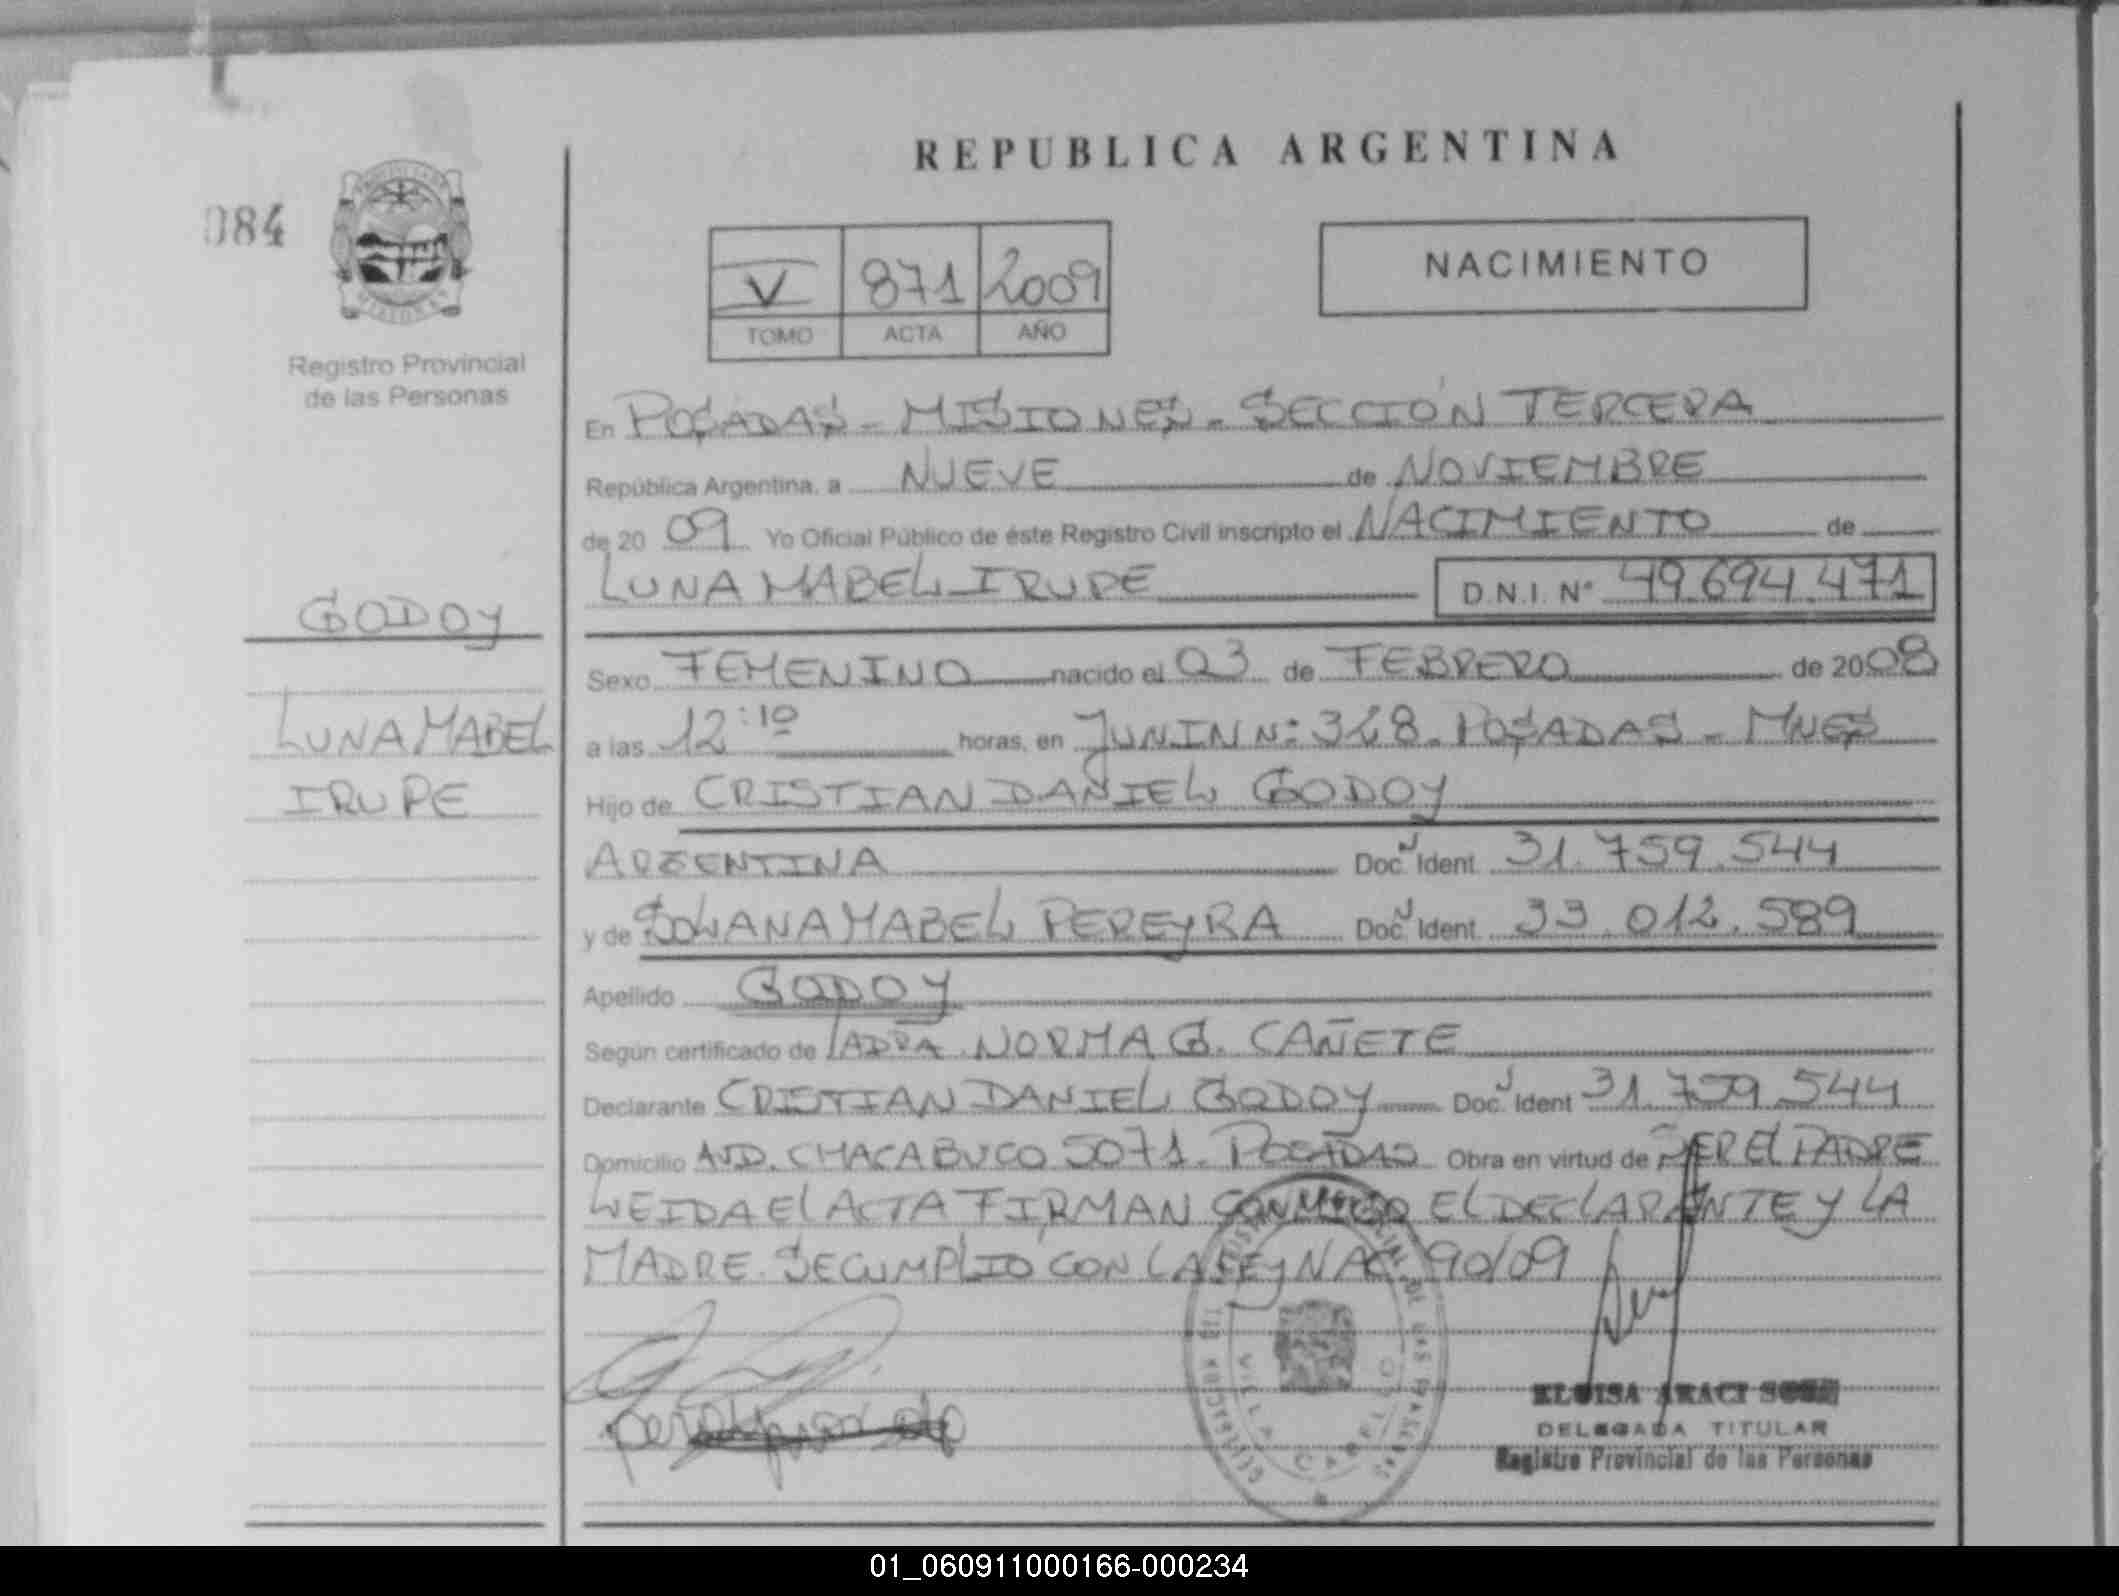 REPUBLICA ARGENTINA
084
V 871 2009
TOMO ACTA AÑO
NACIMIENTO
Registro Provincial
de las Personas
En POSADAS - MISIONES - SECCIÓN TERCERA
República Argentina, a NUEVE de NOVIEMBRE
de 20 09 Yo Oficial Público de éste Registro Civil inscripto el NACIMIENTO de
LUNA MABEL IRUPE D.N.I. Nº 49.694.471
GODOY
LUNA MABEL
IRUPE
Sexo FEMENINO nacido el 03 de FEBRERO de 2008
a las 12:10 horas, en JUNIN Nº 328. POSADAS - MNES
Hijo de CRISTIAN DANIEL GODOY
ARGENTINA Doc. Ident. 31.759.544
y de SOLANA MABEL PEREYRA Doc. Ident. 33.012.589
Apellido GODOY
Según certificado de LA DRA. NORMA G. CAÑETE
Declarante CRISTIAN DANIEL GODOY Doc. Ident 31.759.544
Domicilio AVD. CHACABUCO 5071. POSADAS Obra en virtud de SER EL PADRE
LEIDA EL ACTA FIRMAN CONMIGO EL DECLARANTE Y LA
MADRE. SE CUMPLIO CON LA LEY NAC. 90/09
VILLA CABELLO
ELOISA ARACI
DELEGADA TITULAR
Registro Provincial de las Personas
01_060911000166-000234